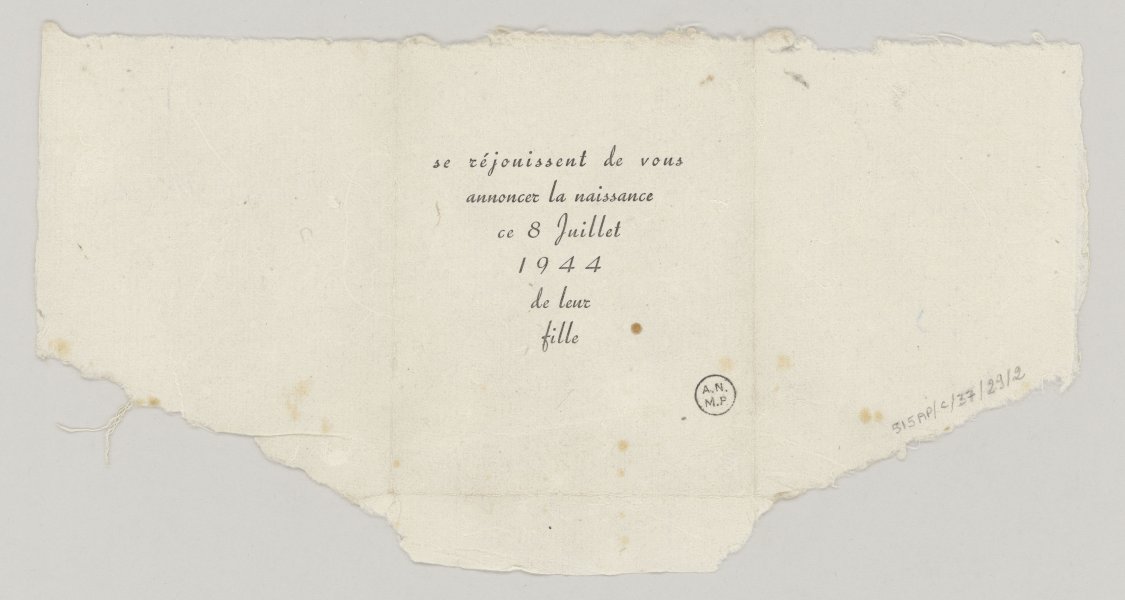 se réjouissent de vous
annoncer la naissance
ce 8 Juillet
1944
de leur
fille
A.N.
M.P
515AP/C/37/29/2